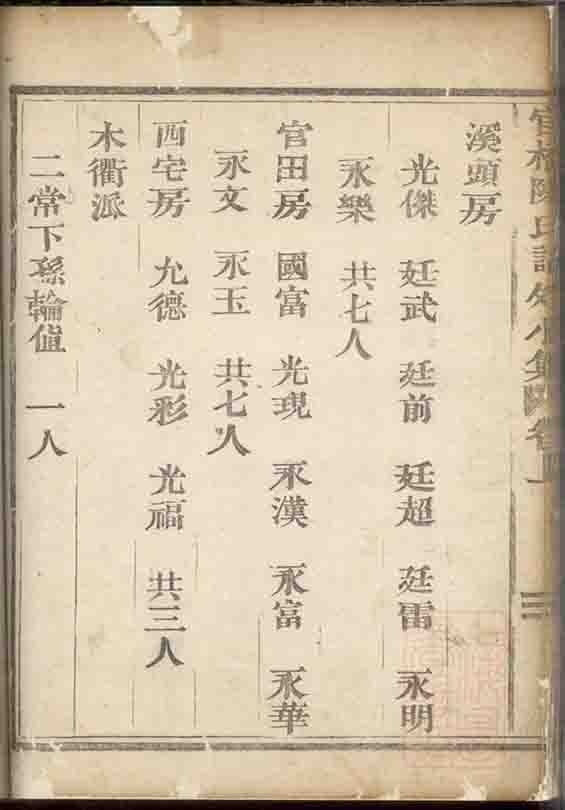 陳氏 小集 三
溪頭房
光傑 廷武 廷前 廷超 廷雷 永明
永樂 共七人
官田房 國富 光現 永漢 永富 永華
永文 永玉 共七人
西宅房 允德 光彩 光福 共三人
木衢派
二常下孫輪值 一人